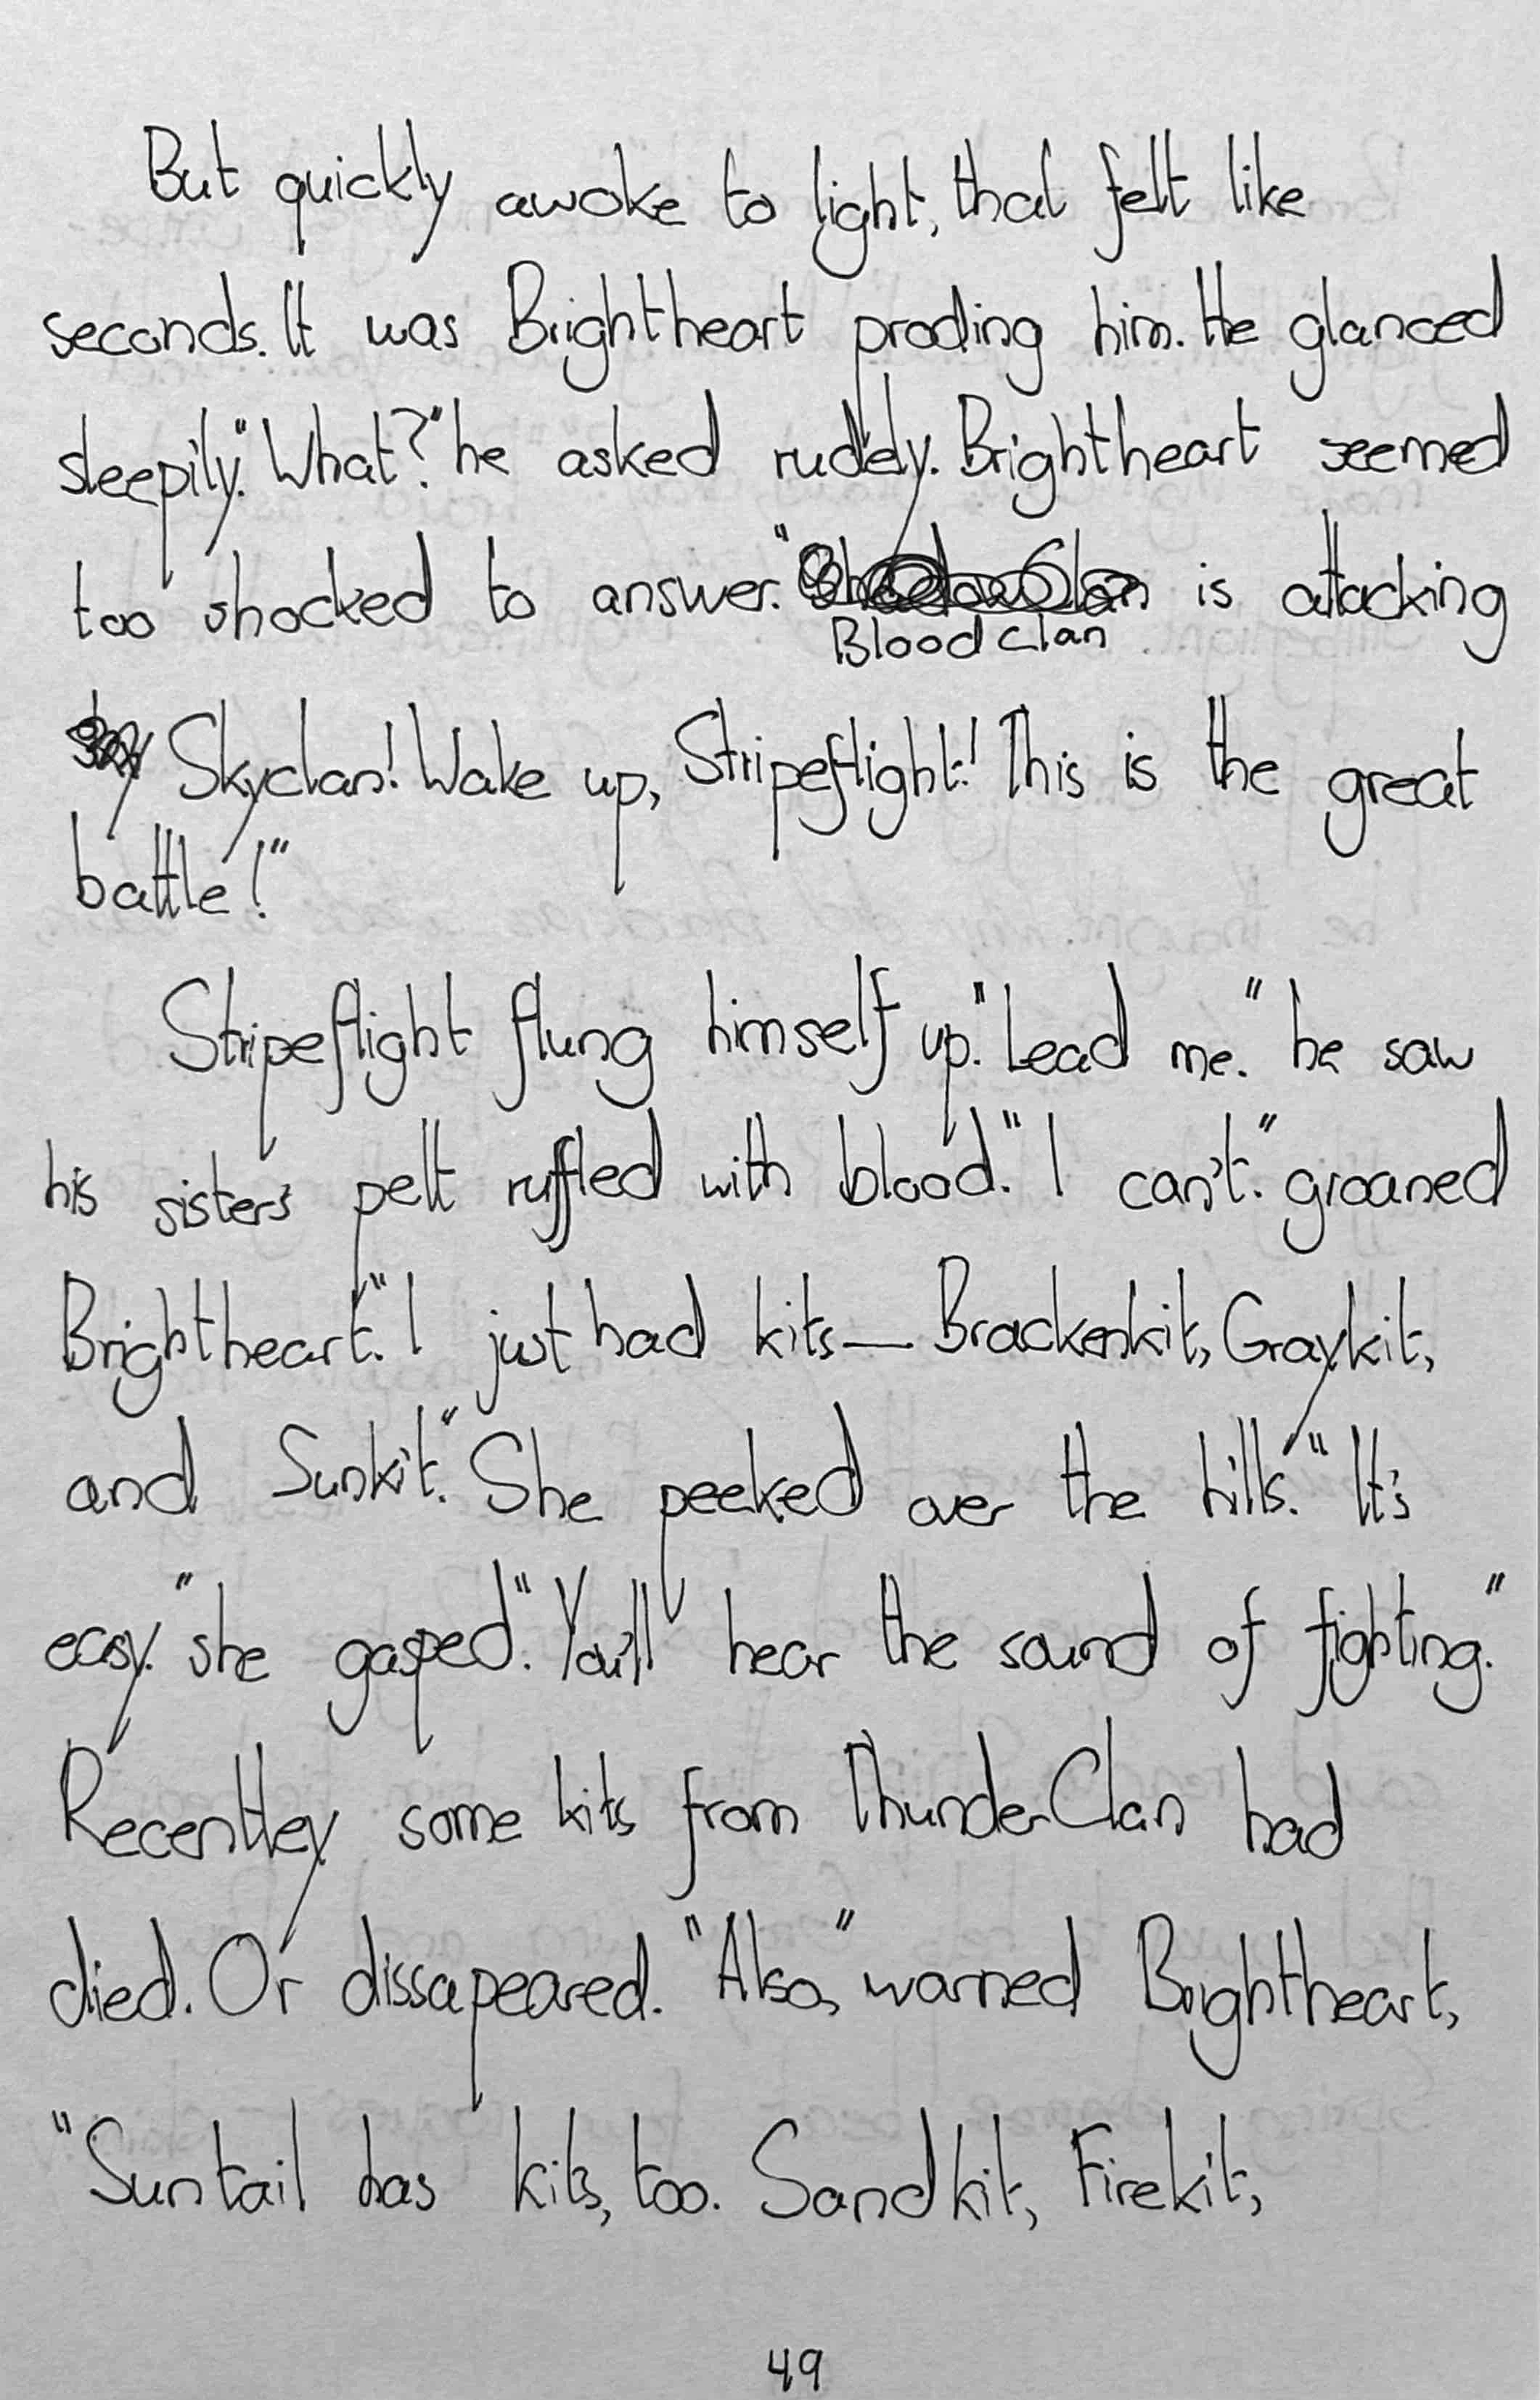 But quickly awoke to light, that felt like
seconds. It was Brightheart proding him. He glanced
sleepily. "What?" he asked rudely. Brightheart seemed
too shocked to answer. " is attacking
BloodClan
Skyclan! Wake up, Stripeflight! This is the great
battle!"
Stripeflight flung himself up. "Lead me." he saw
his sister's pelt ruffled with blood. "I can't." groaned
Brightheart. "I just had kits—Brackenkit, Graykit,
and Sunkit." She peeked over the hills. "It's
easy." she gasped. "You'll hear the sound of fighting."
Recentley some kits from ThunderClan had
died. Or dissapeared. "Also," warned Brightheart,
"Suntail has kits, too. Sandkit, Firekit,
49